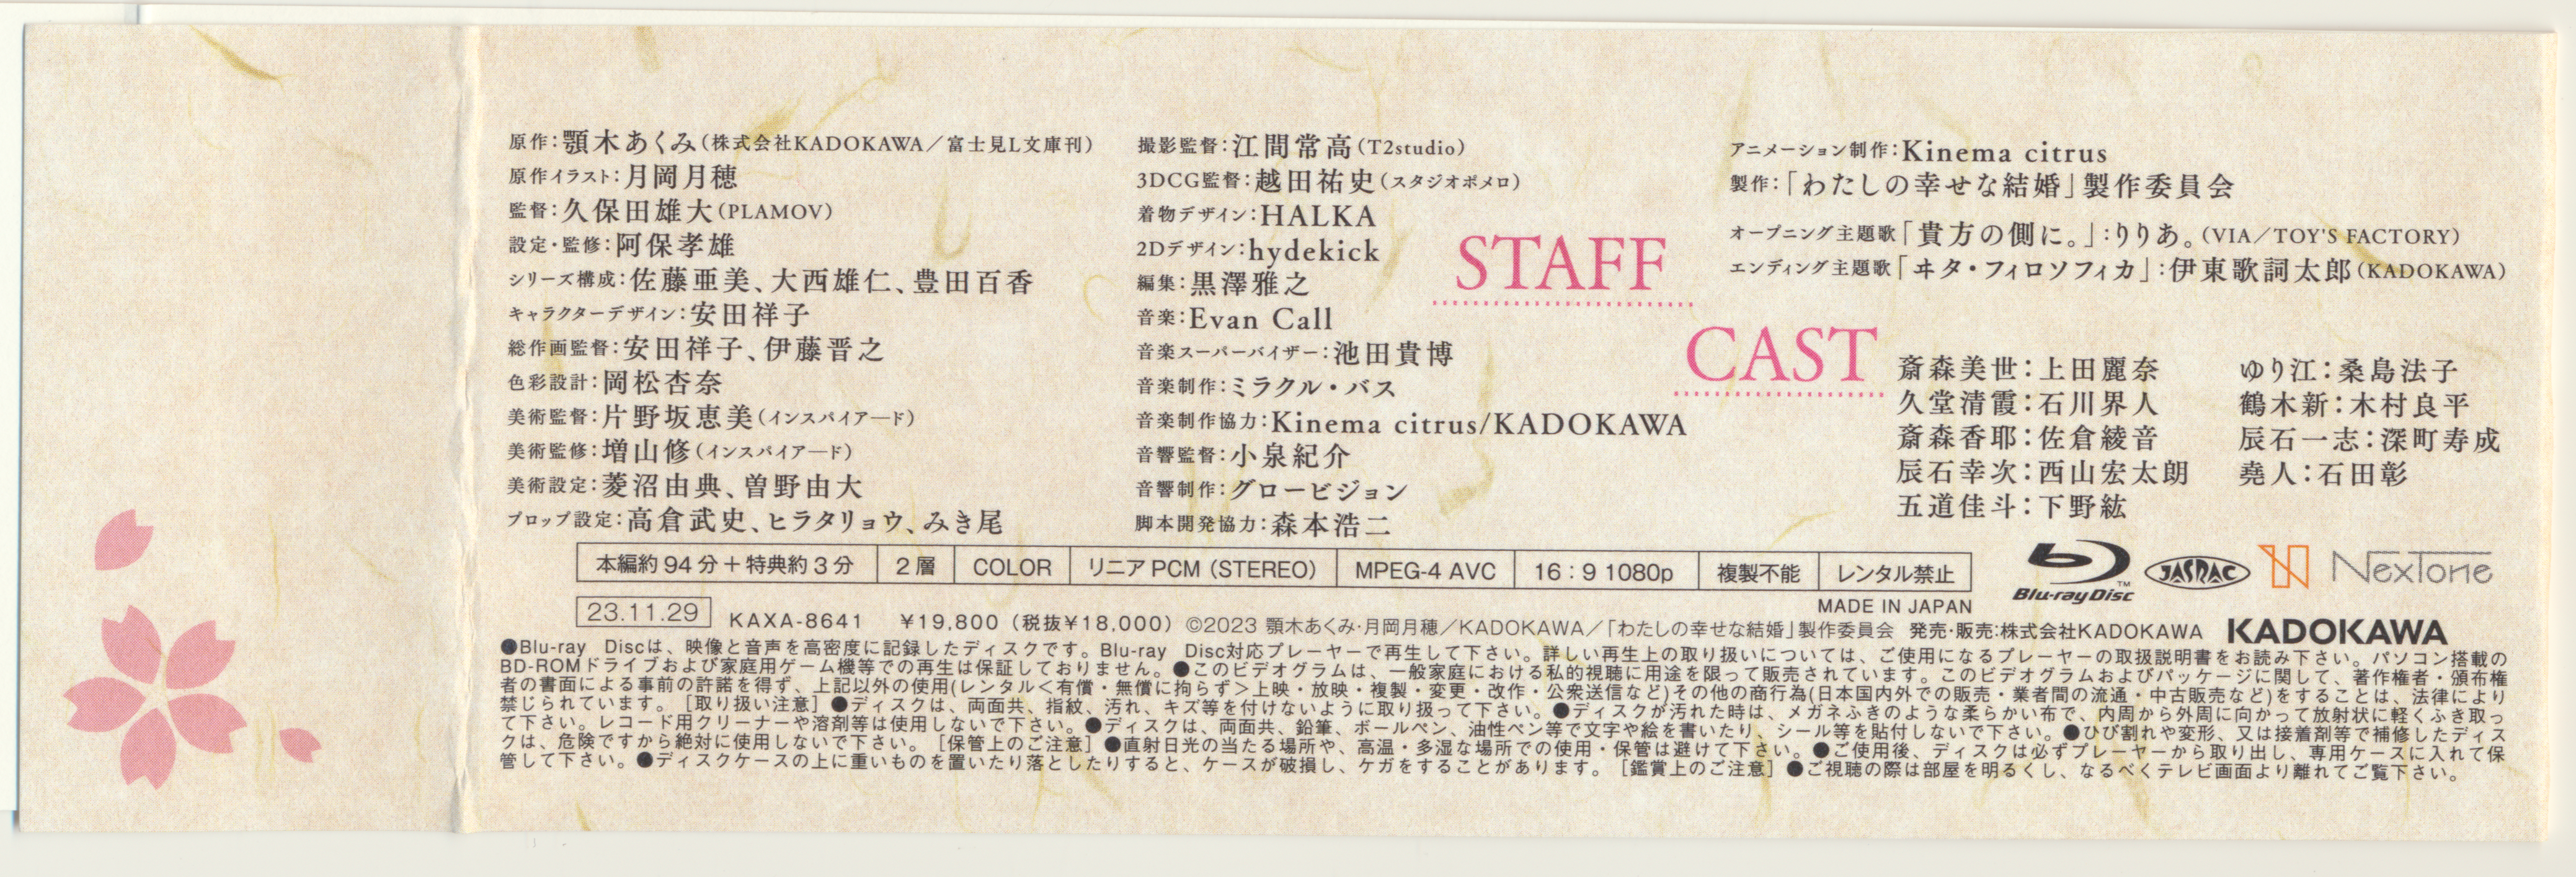 原作：顎木あくみ（株式会社KADOKAWA／富士見L文庫刊）
原作イラスト：月岡月穂
監督：久保田雄大（PLAMOV）
設定・監修：阿保孝雄
シリーズ構成：佐藤亜美、大西雄仁、豊田百香
キャラクターデザイン：安田祥子
総作画監督：安田祥子、伊藤晋之
色彩設計：岡松杏奈
美術監督：片野坂恵美（インスパイアード）
美術監修：増山修（インスパイアード）
美術設定：菱沼由典、曽野由大
プロップ設定：高倉武史、ヒラタリョウ、みき尾
撮影監督：江間常高（T2studio）
3DCG監督：越田祐史（スタジオポメロ）
着物デザイン：HALKA
2Dデザイン：hydekick
編集：黒澤雅之
音楽：Evan Call
音楽スーパーバイザー：池田貴博
音楽制作：ミラクル・バス
音楽制作協力：Kinema citrus/KADOKAWA
音響監督：小泉紀介
音響制作：グロービジョン
脚本開発協力：森本浩二
STAFF
アニメーション制作：Kinema citrus
製作：「わたしの幸せな結婚」製作委員会
オープニング主題歌「貴方の側に。」：りりあ。（VIA／TOY'S FACTORY）
エンディング主題歌「ヰタ・フィロソフィカ」：伊東歌詞太郎（KADOKAWA）
CAST
斎森美世：上田麗奈
久堂清霞：石川界人
斎森香耶：佐倉綾音
辰石幸次：西山宏太朗
五道佳斗：下野紘
ゆり江：桑島法子
鶴木新：木村良平
辰石一志：深町寿成
堯人：石田彰
本編約94分＋特典約3分 2層 COLOR リニアPCM（STEREO） MPEG-4 AVC 16：9 1080p 複製不能 レンタル禁止
Blu-ray Disc™ JASRAC N NexTone
MADE IN JAPAN
23.11.29 KAXA-8641 ¥19,800（税抜¥18,000） ©2023 顎木あくみ・月岡月穂／KADOKAWA／「わたしの幸せな結婚」製作委員会 発売・販売：株式会社KADOKAWA KADOKAWA
●Blu-ray Discは、映像と音声を高密度に記録したディスクです。Blu-ray Disc対応プレーヤーで再生して下さい。詳しい再生上の取り扱いについては、ご使用になるプレーヤーの取扱説明書をお読み下さい。パソコン搭載の
BD-ROMドライブおよび家庭用ゲーム機等での再生は保証しておりません。●このビデオグラムは、一般家庭における私的視聴に用途を限って販売されています。このビデオグラムおよびパッケージに関して、著作権者・頒布権
者の書面による事前の許諾を得ず、上記以外の使用(レンタル＜有償・無償に拘らず＞上映・放映・複製・変更・改作・公衆送信など)その他の商行為(日本国内外での販売・業者間の流通・中古販売など)をすることは、法律により
禁じられています。［取り扱い注意］●ディスクは、両面共、指紋、汚れ、キズ等を付けないように取り扱って下さい。●ディスクが汚れた時は、メガネふきのような柔らかい布で、内周から外周に向かって放射状に軽くふき取っ
て下さい。レコード用クリーナーや溶剤等は使用しないで下さい。●ディスクは、両面共、鉛筆、ボールペン、油性ペン等で文字や絵を書いたり、シール等を貼付しないで下さい。●ひび割れや変形、又は接着剤等で補修したディス
クは、危険ですから絶対に使用しないで下さい。［保管上のご注意］●直射日光の当たる場所や、高温・多湿な場所での使用・保管は避けて下さい。●ご使用後、ディスクは必ずプレーヤーから取り出し、専用ケースに入れて保
管して下さい。●ディスクケースの上に重いものを置いたり落としたりすると、ケースが破損し、ケガをすることがあります。［鑑賞上のご注意］●ご視聴の際は部屋を明るくし、なるべくテレビ画面より離れてご覧下さい。